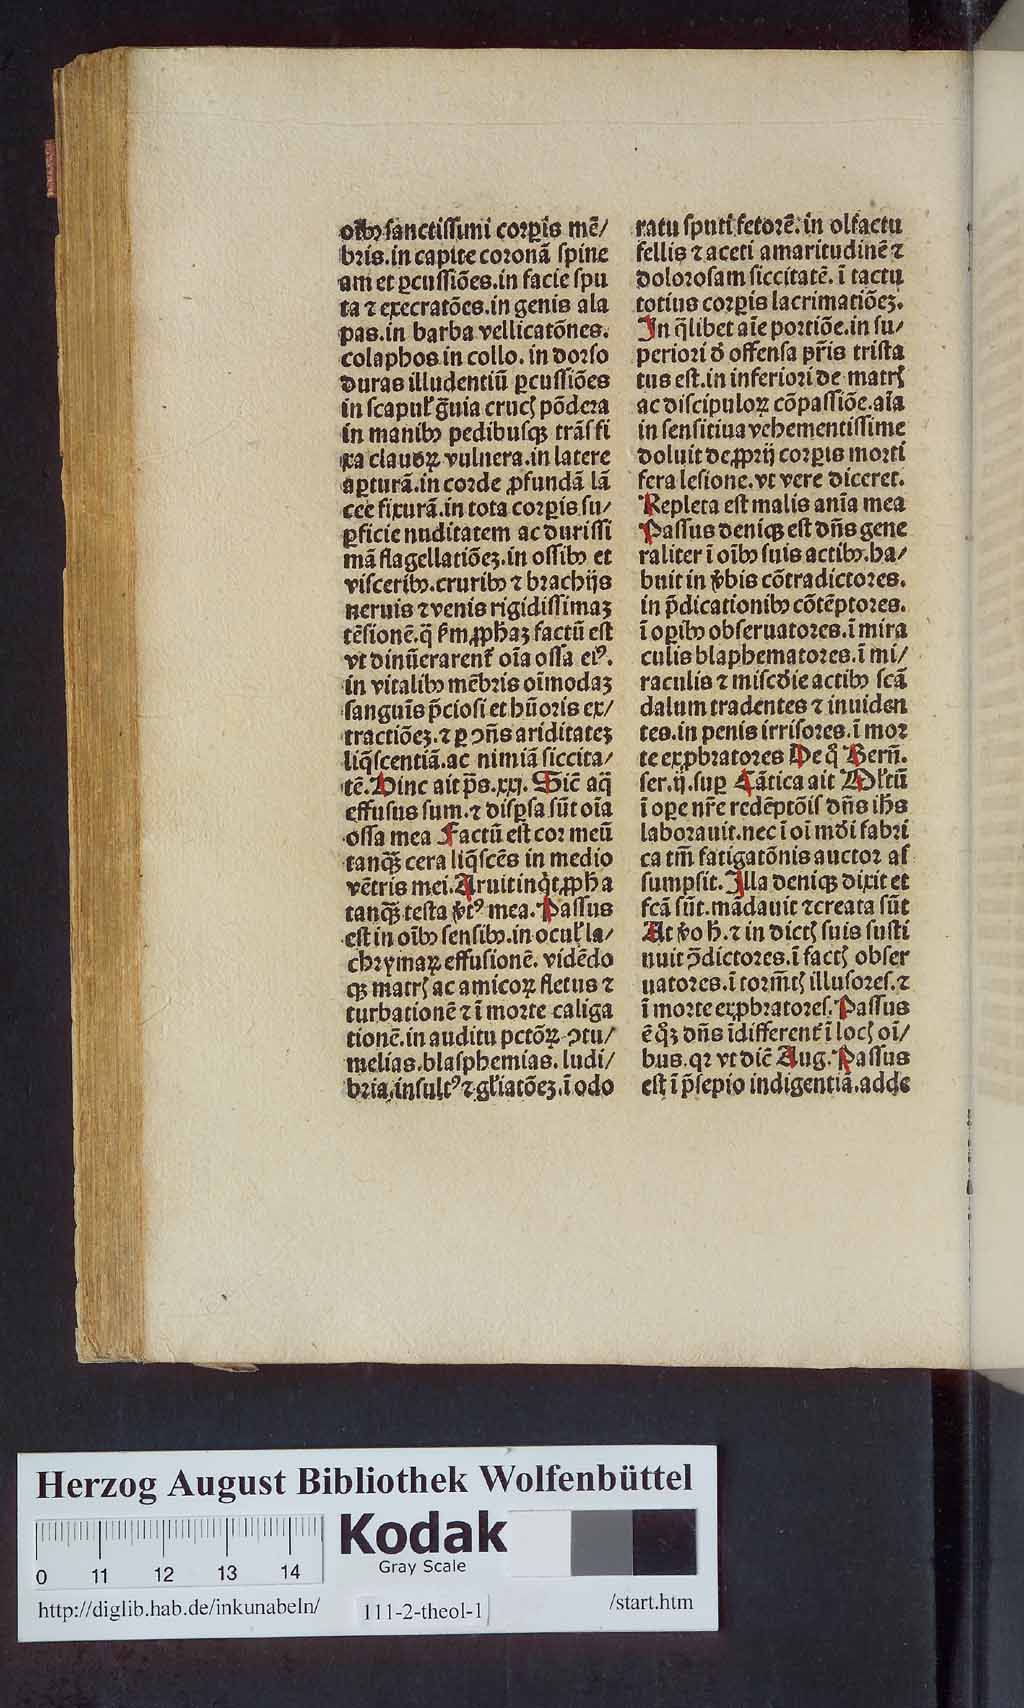 oībꝰ sanctissimi corꝑis mē/
bris.in capite coronā spine
am et ꝑcussiões.in facie spu
ta ⁊ execratões.in genis ala
pas.in barba vellicatōnes.
colaphos in collo. in dorso
duras illudentiū ꝑcussiões
in scapuł g̃uia crucꝭ põdera
in manibꝰ pedibusqꝫ trãs fi
xa clauoꝝ vulnera.in latere
aꝑturā.in corde ꝓfundā lā
cee fixurā.in tota corꝑis su/
ꝑficie nuditatem ac durissi
mā flagellatiōeꝫ.in ossibꝰ et
visceribꝰ.cruribꝰ ⁊ brachijs
neruis ⁊ venis rigidissimaꝫ
tēsionē.q̄ ẜm ꝓphaꝫ factū est
vt dinūerarent᷑ oīa ossa eiꝰ.
in vitalibꝰ mēbris oīmodaꝫ
sanguīs p̄ciosi et hūoris ex/
tractiōeꝫ.⁊ ꝑ ꝯñs ariditateꝫ
liq̄scentiā.ac nimiā siccita/
tē.Hinc ait p̄s.xxj. Sic̄ aq̄
effusus sum.⁊ disꝑsa sūt oīa
ossa mea Factū est cor meū
tanqꝫ cera liq̄scēs in medio
vētris mei.Aruit inq̇t ꝓpha
tanqꝫ testa v̓tꝰ mea.Passus
est in oībꝰ sensibꝰ.in ocuł la/
chrymaꝝ effusionē. vidēdo
qꝫ matrꝭ ac amicoꝝ fletus ⁊
turbationē ⁊ ī morte caliga
tionē.in auditu pctōꝝ ꝯtu/
melias.blasphemias. ludi/
bria.insultꝰ ⁊ gliatōeꝫ.ī odo
ratu sputi fetorē. in olfactu
fellis ⁊ aceti amaritudinē ⁊
dolorosam siccitatē. ī tactu
totius corꝑis lacrimatiōeꝫ.
In q̄libet aīe portiōe.in su/
periori ð offensa pr̄is trista
tus est.in inferiori de matrꝭ
ac discipuloꝝ cōpassiōe.aīa
in sensitiua vehementissime
doluit de ꝓprij corꝑis morti
fera lesione.vt vere diceret.
Repleta est malis anīa mea
Passus deniqꝫ est dn̄s gene
raliter ī oībꝰ suis actibꝰ.ha/
buit in v̓bis cōtradictores.
in p̄dicationibꝰ cōtēptores.
ī oꝑibꝰ obseruatores.ī mira
culis blaphematores.ī mi/
raculis ⁊ misc̄die actibꝰ scā
dalum tradentes ⁊ inuiden
tes.in penis irrisores.ī mor
te exꝓbratores De qͦ Bern̄.
ser.ij.suꝑ Cātica ait Mltū
ī oꝑe nr̄e redēptōis dn̄s ih̄s
laborauit.nec ī oī mūdi fabri
ca tm̄ fatigatōnis auctor as
sumpsit.Illa deniqꝫ dixit et
fcā sūt.mādauit ⁊creata sūt
At v̓o h̄.⁊ in dictꝭ suis susti
nuit ꝯdictores.ī factꝭ obser
uatores.ī torm̄tꝭ illusores.⁊
ī morte exꝓbratores.Passus
ē qͦꝫ dn̄s īdifferent᷑ ī locꝭ oī/
bus.qꝛ vt dic̄ Aug.Passus
est ī p̄sepio indigentiā.adde
Herzog August Bibliothek Wolfenbüttel
Kodak
Gray Scale
0 11 12 13 14
http://diglib.hab.de/inkunabeln/
111-2-theol-1
/start.htm